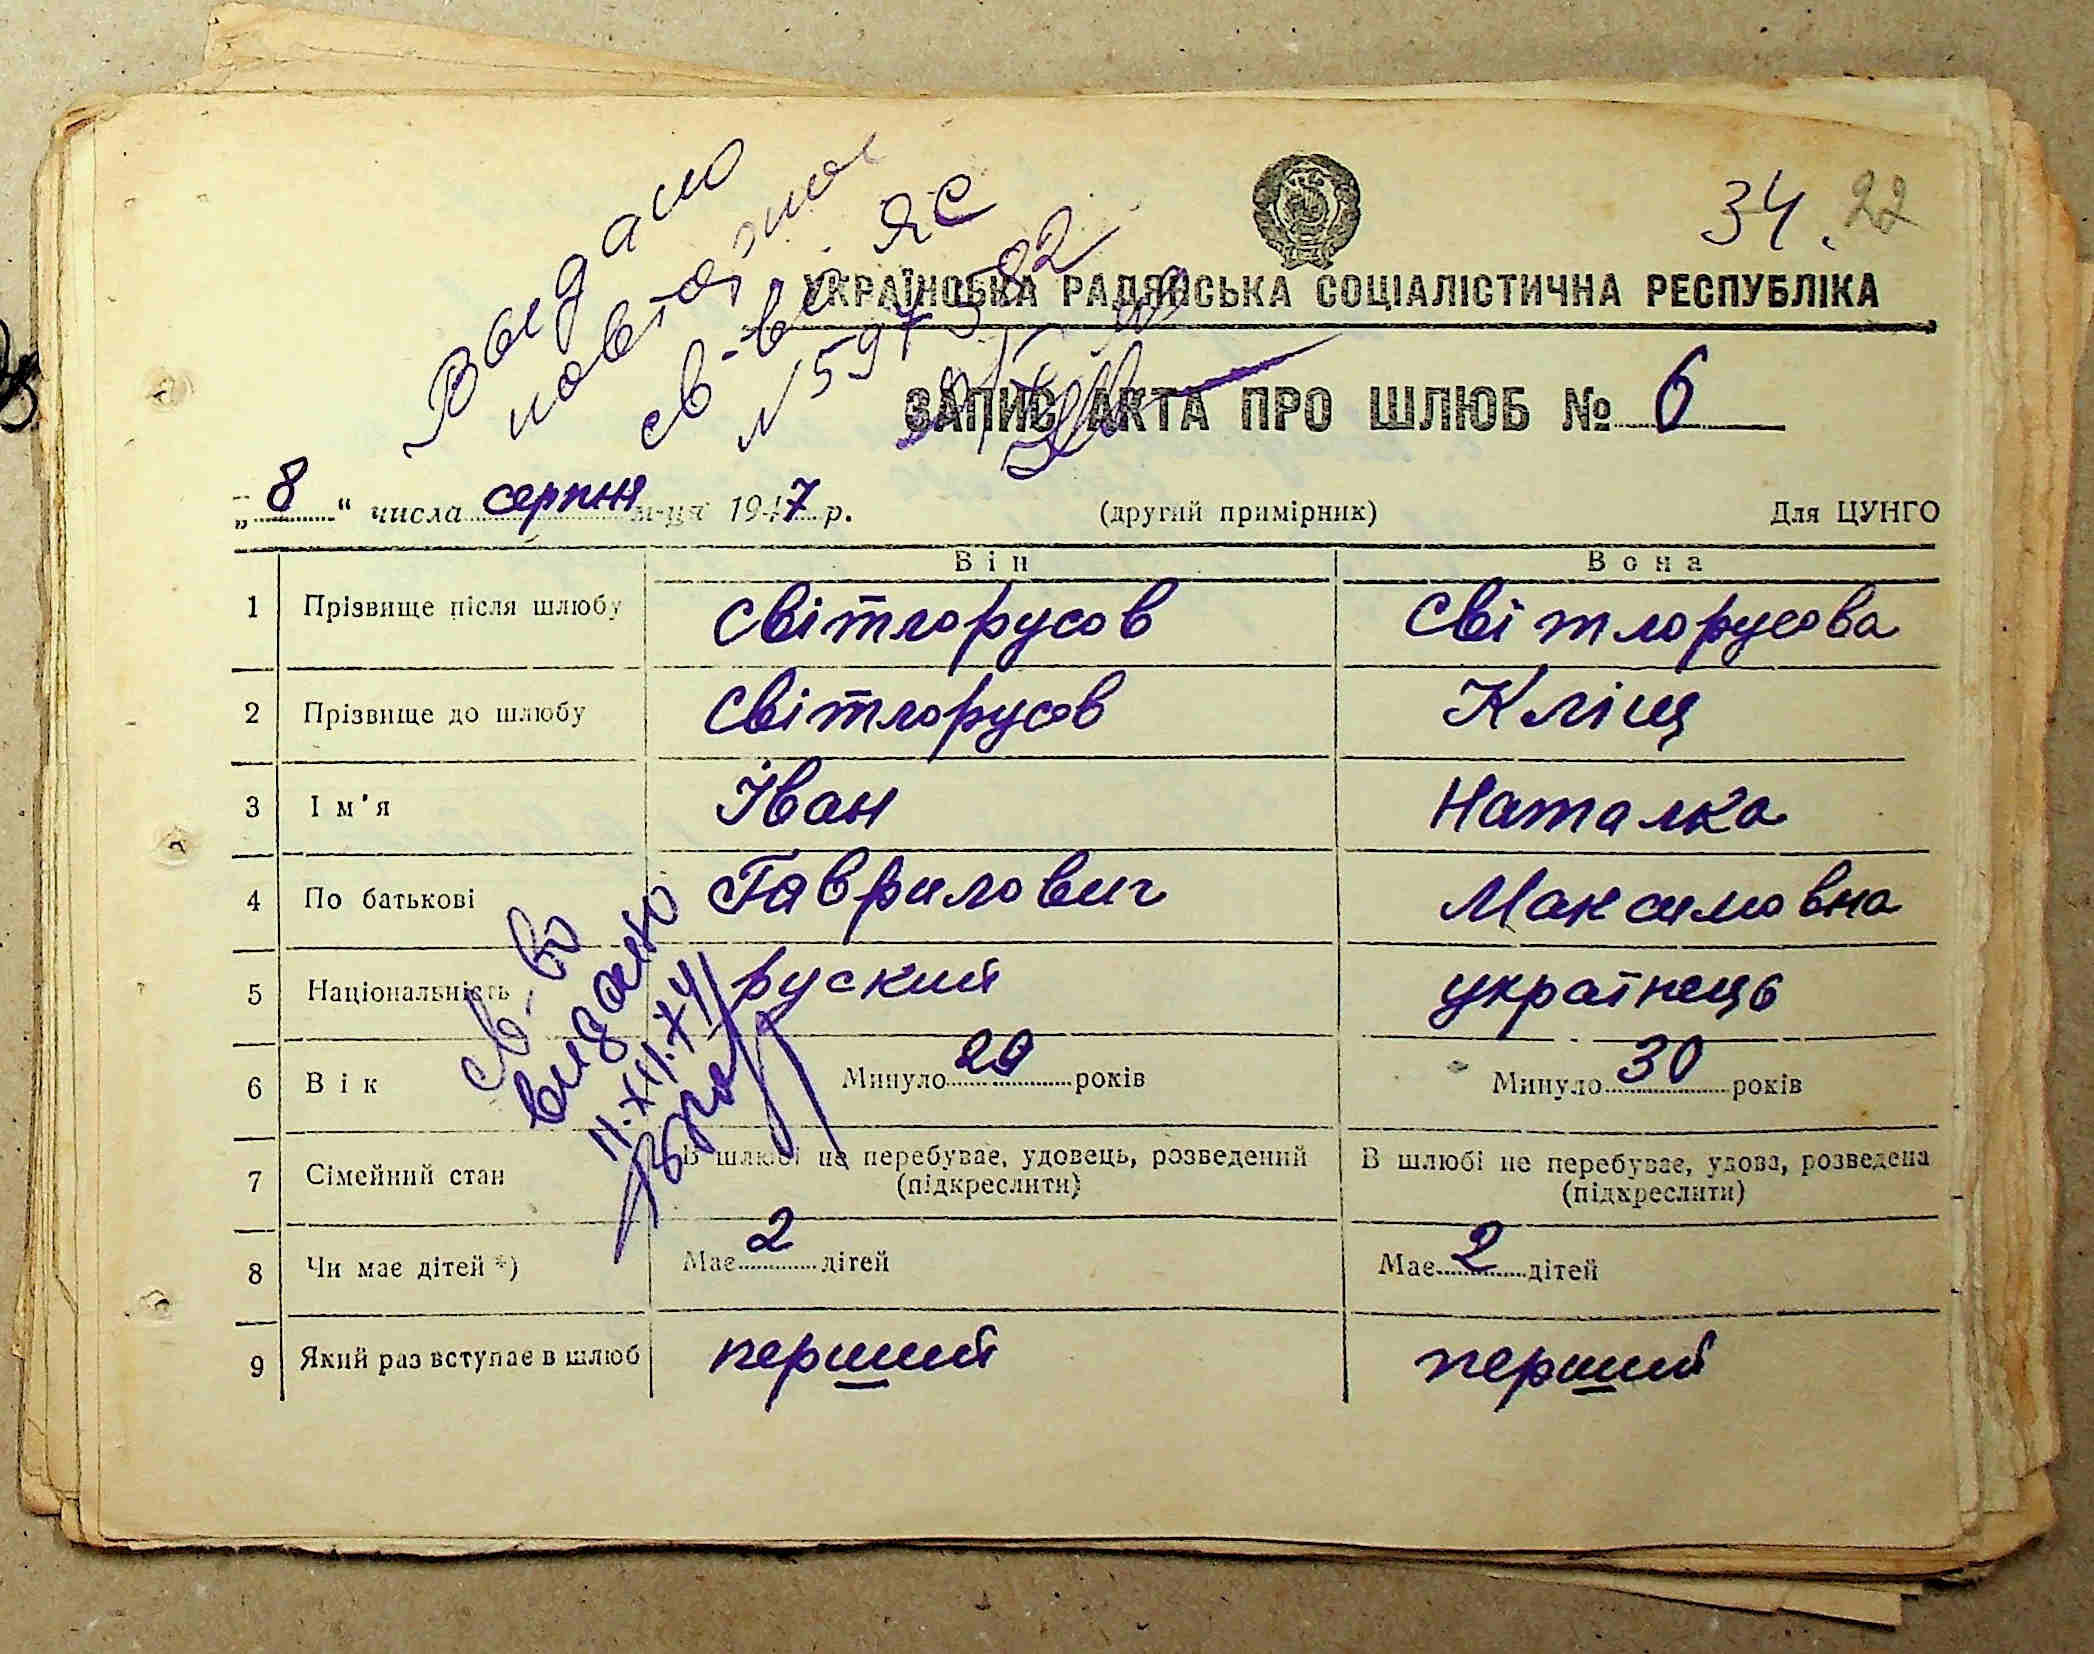 34. 22
Видано
повторне
св-во ЯС
№ 597382
УКРАЇНСЬКА РАДЯНСЬКА СОЦІАЛІСТИЧНА РЕСПУБЛІКА
ЗАПИС АКТА ПРО ШЛЮБ № 6
„8“ числа серпня м-ця 1947 р. (другий примірник) Для ЦУНГО
Він Вона
1 Прізвище після шлюбу Світлорусов Світлорусова
2 Прізвище до шлюбу Світлорусов Кліщ
3 Ім'я Іван Наталка
4 По батькові Гаврилович Максимовна
5 Національність руский українець
6 Вік Минуло років Минуло 30 років
7 Сімейний стан В шлюбі не перебуває, удовець, розведений В шлюбі не перебуває, удова, розведена
(підкреслити) (підкреслити)
8 Чи має дітей *) Має 2 дітей Має 2 дітей
9 Який раз вступає в шлюб перший перший
св-во
видано